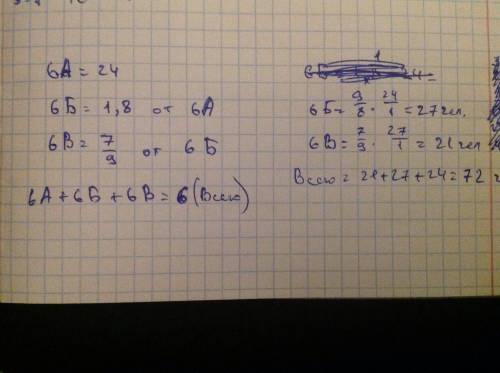 6А = 24
6Б = 1,8 от 6А
6В = 7/9 от 6Б
6А + 6Б + 6В = 6 (Всего)
1
6Б = 9/8 · 24/1 = 27 чел.
6В = 7/9 · 27/1 = 21 чел
Всего = 21 + 27 + 24 = 72